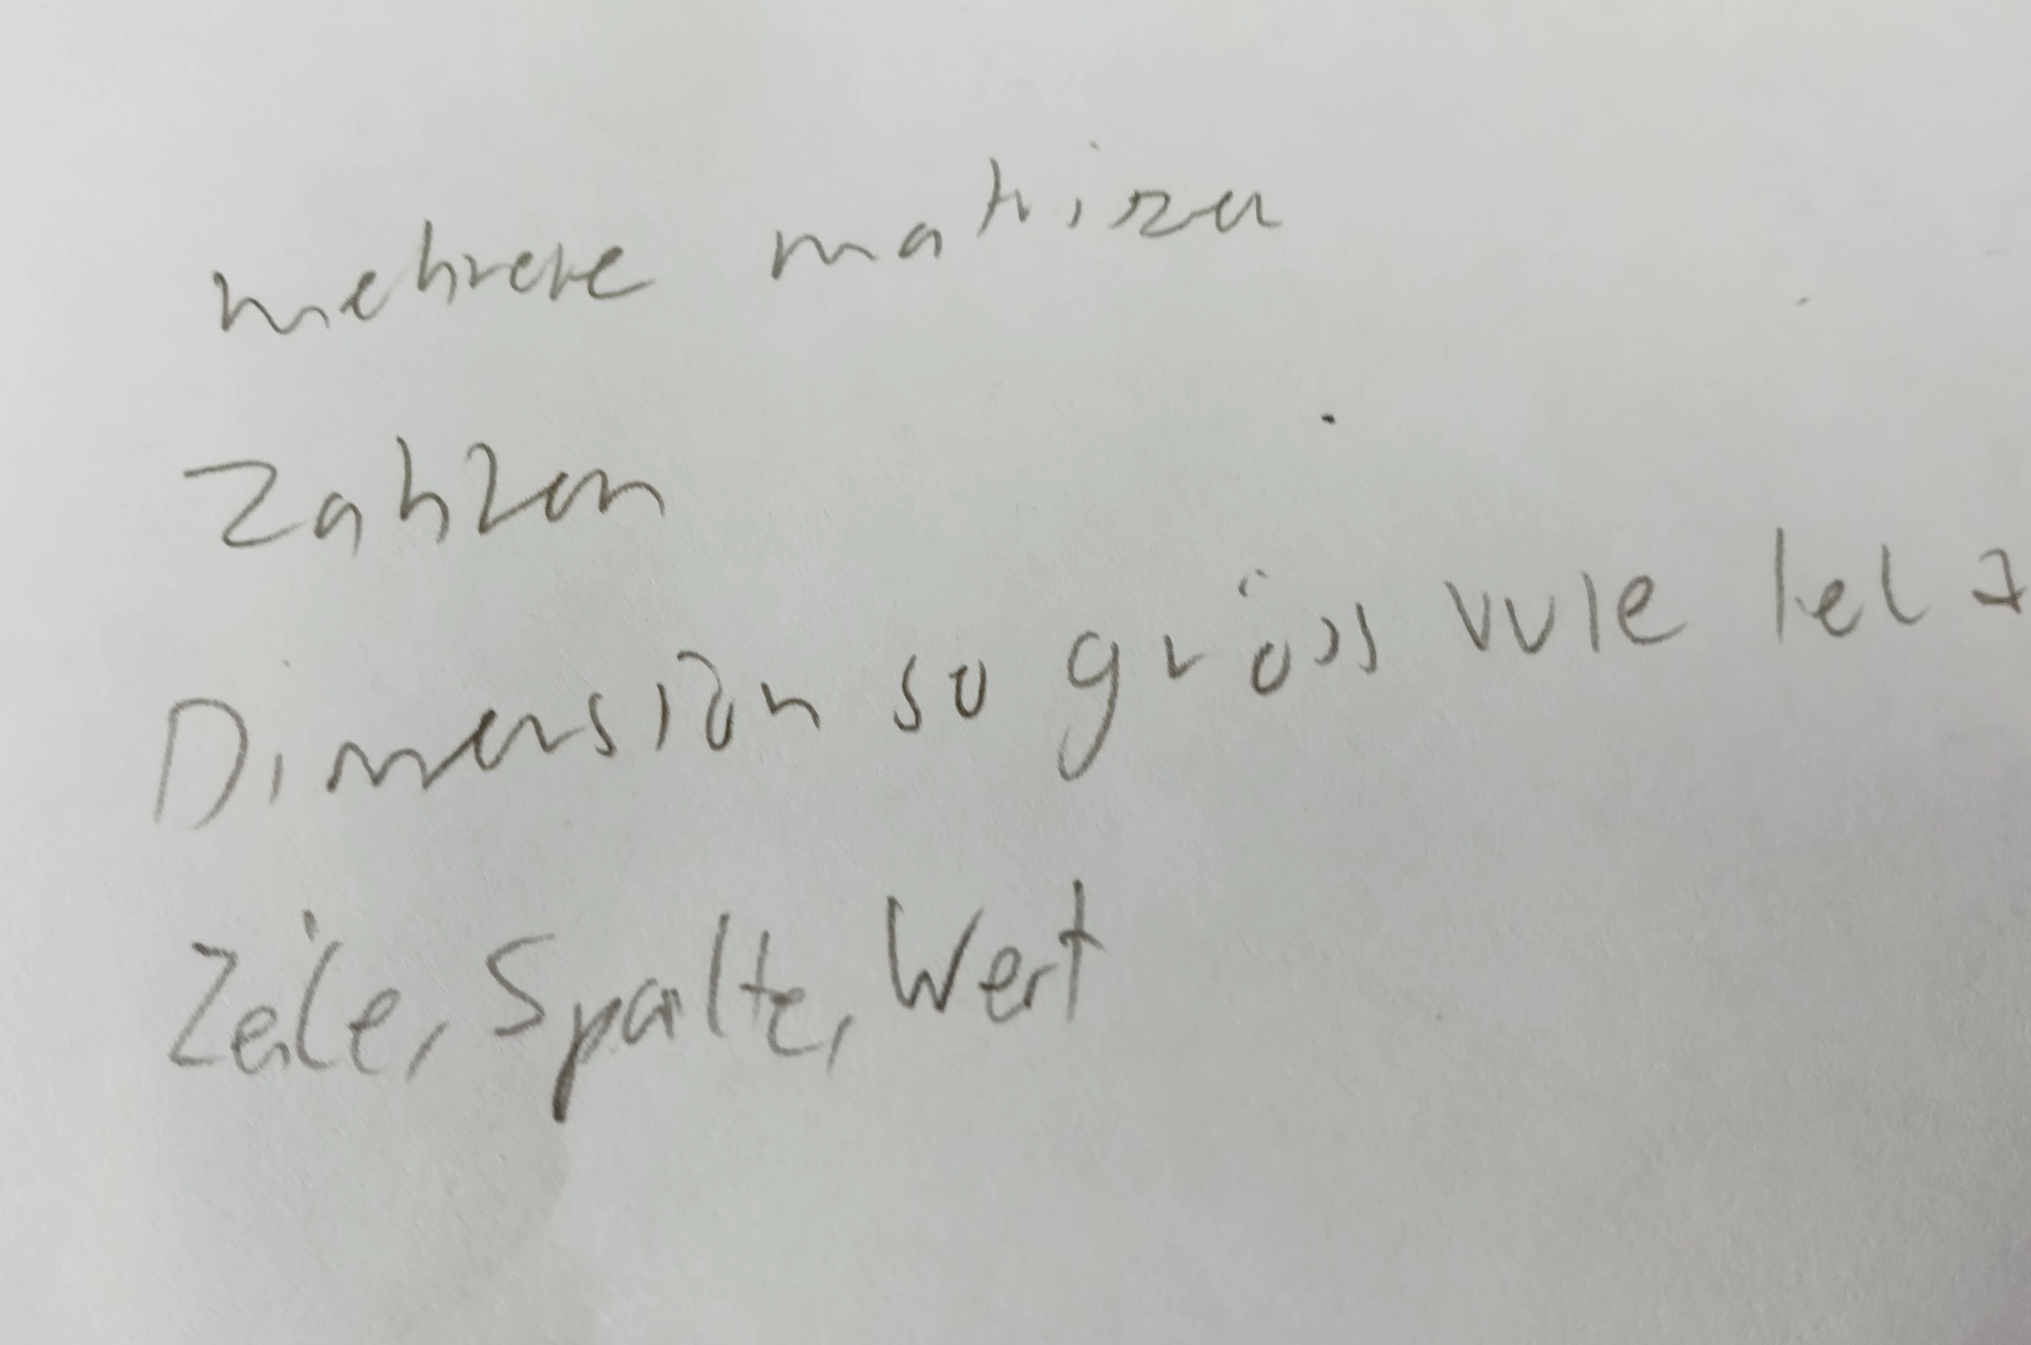 mehrere matrizen
Zahlen
Dimension so gröss wie letz
Zeile, Spalte, Wert